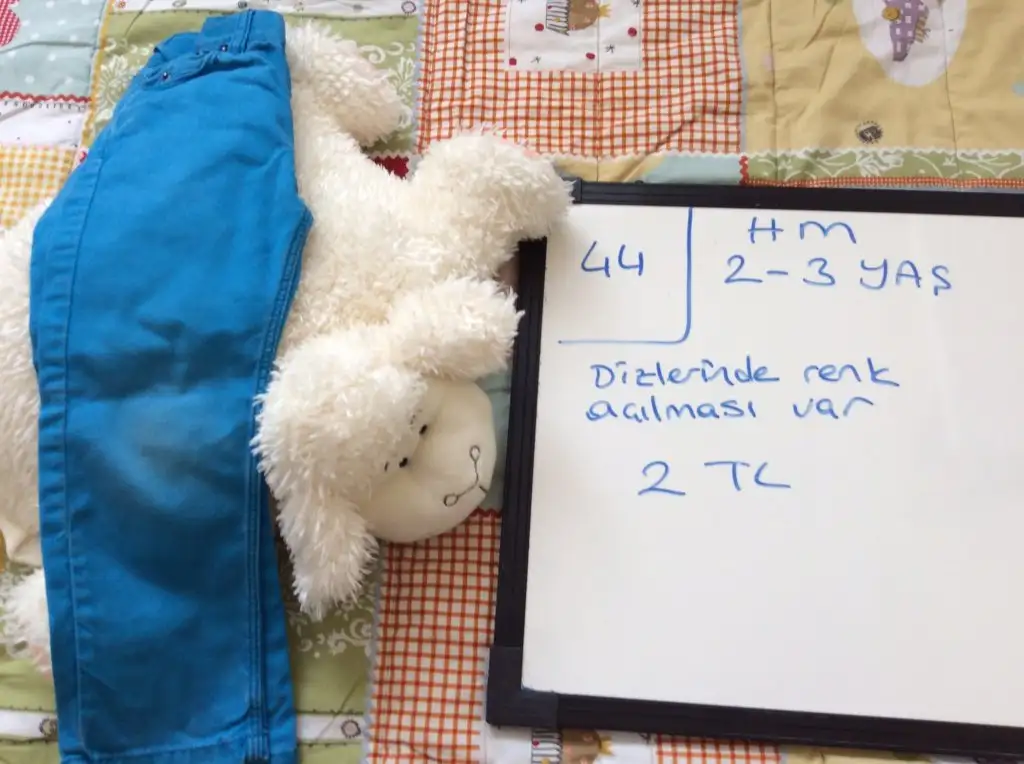 44
HM
2-3 YAŞ
Dizlerinde renk
açılması var
2 TL